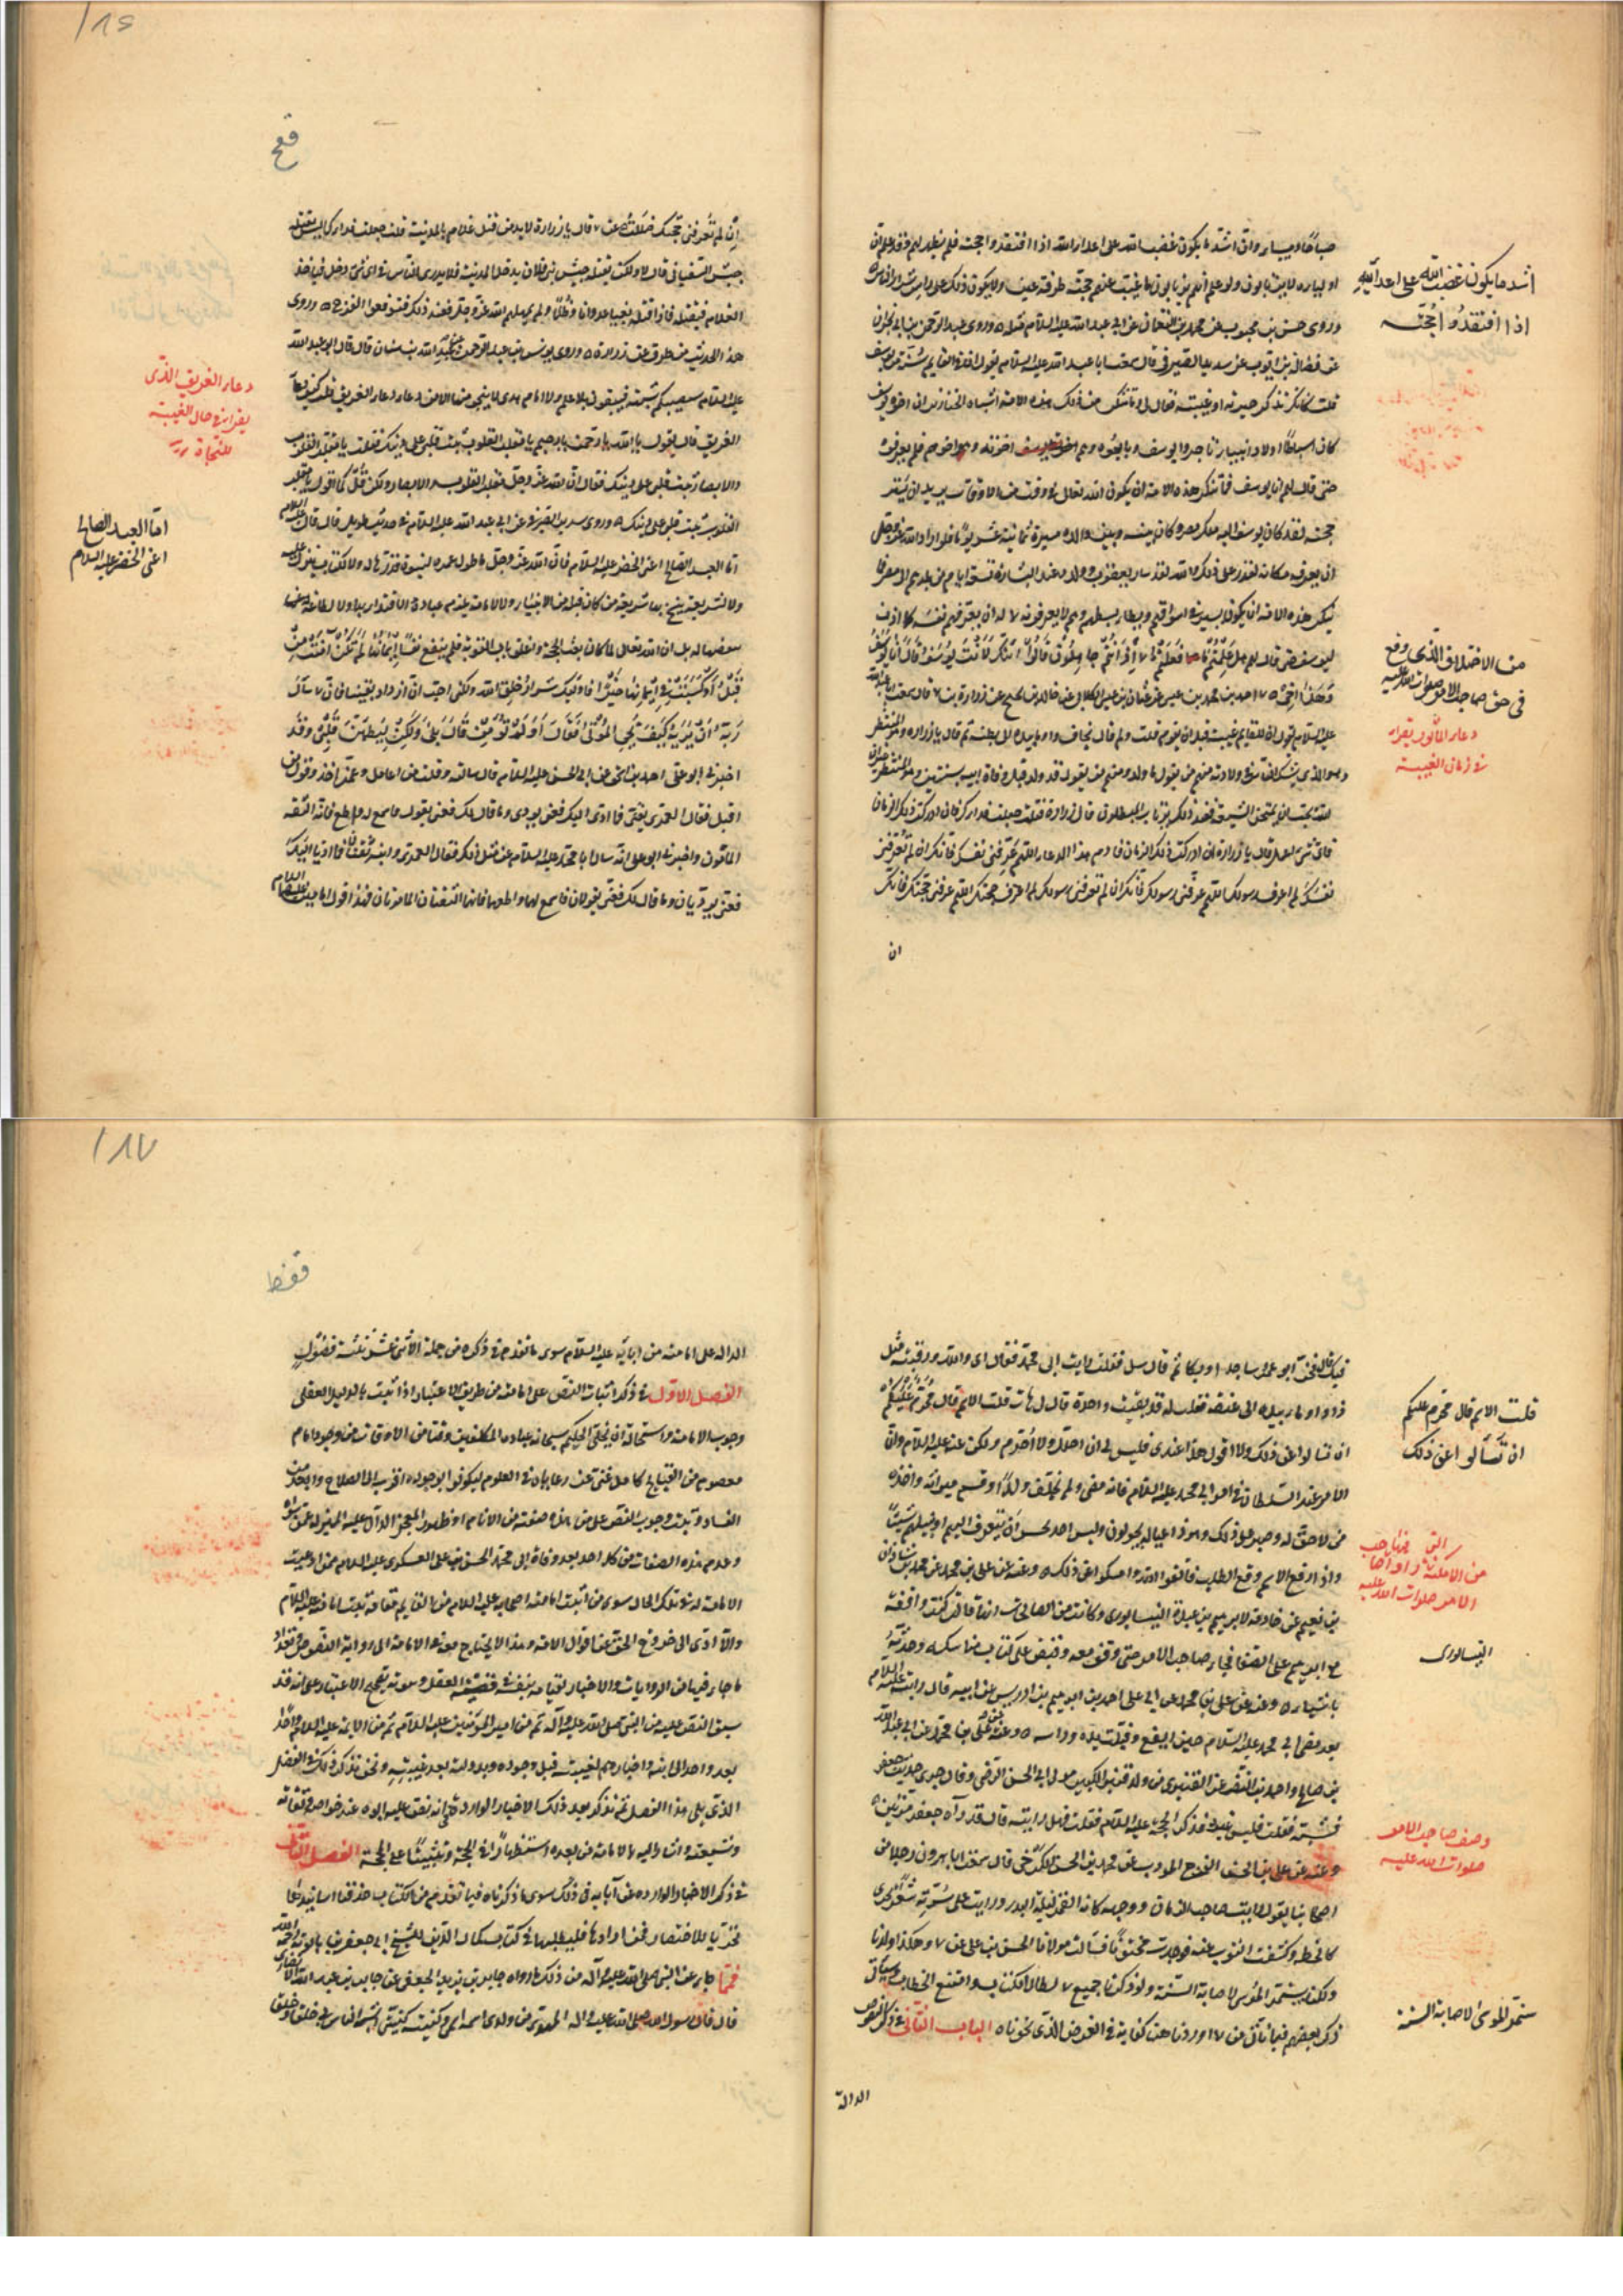 صباحا ومساء وان اشد ما يكون غضب الله على اعداء الله اذا افتقدوا حجته فلم يظهر لهم وقد علم ان
اولياءه لا يرتابون ولو علم انهم يرتابون ما غيبت عنهم حجته طرفة عين ولا يكون ذلك على راس شرار الناس
وروى حسن بن محبوب عن محمد بن النعمان عن ابي عبد الله عليه السلام مثله وروى عبد الرحمن بن ابي نجران
عن فضالة بن ايوب عن سدير الصيرفي قال سمعت ابا عبد الله عليه السلام يقول ان في القايم سنة من يوسف
قلت كانك تذكر حيرته او غيبته فقال لي وما تنكر من ذلك هذه الامة اشباه الخنازير ان اخوة يوسف
كانوا اسباطا اولاد انبياء تاجروا يوسف وبايعوه وهم اخوته وهو اخوهم فلم يعرفوه
حتى قال لهم انا يوسف فما تنكر هذه الامة ان يكون الله تعالى في وقت من الاوقات يريد ان يستر
حجته لقد كان يوسف اليه ملك مصر وكان بينه وبين والده مسيرة ثمانية عشر يوما فلو اراد الله عز وجل
ان يعرفه مكانه لقدر على ذلك والله لقد سار يعقوب وولده عند البشارة تسعة ايام من بدوهم الى مصر فما
تنكر هذه الامة ان يكون يسير في اسواقهم ويطأ بسطهم وهم لا يعرفونه له ان يعرفهم نفسه كما اذن
ليوسف حتى قال لهم هل علمتم ما فعلتم اذ انتم جاهلون قالوا ائنك لانت يوسف قال انا يوسف
وهذا اخي احمد بن محمد بن عيسى عن عثمان بن عيسى الكلابي عن خالد بن نجيح عن زرارة بن قال سمعت ابا عبد الله
عليه السلام يقول ان للقايم غيبة قبل ان يقوم قلت ولم قال يخاف واوما بيده الى بطنه ثم قال يا زرارة وهو المنتظر
وهو الذي يشك الناس في ولادته منهم من يقول ما ولد ومنهم من يقول قد ولد قبل وفاة ابيه بسنتين وهو المنتظر
الشيعة فعند ذلك يرتاب المبطلون قال زرارة فقلت جعلت فداك فان ادركت ذلك الزمان
فاي شي اعمل قال يا زرارة ان ادركت ذلك الزمان فادم هذا الدعاء اللهم عرفني نفسك فانك ان لم تعرفني
نفسك لم اعرف رسولك اللهم عرفني رسولك فانك ان لم تعرفني رسولك لم اعرف حجتك اللهم عرفني حجتك فانك
ان
اشد ما يكون غضب الله على اعداء الله
اذا افتقدوا حجته
من الاختلاف الذي وقع
في حق صاحب الامر صلوات الله عليه
دعاء المأثور يقراء
في زمان الغيبة
ان لم تعرفني حجتك ضللت عن قال يا زرارة لابد من قتل غلام بالمدينة قلت جعلت فداك اليس يقتله
جيش السفياني قال لا ولكن يقتله جيش بني فلان يدخل المدينة فلا يدري الناس في اي شي دخل فياخذ
الغلام فيقتله فاذا قتله بغيا وعدوانا وظلما لم يمهلهم الله عز وجل فعند ذلك فتوقعوا الفرج وروى
هذا الحديث من طرق عن زرارة وروى يونس بن عبد الرحمن عن عبد الله بن سنان قال قال ابو عبد الله
عليه السلام سيصيبكم شبهة فيبقون بلا علم ولا امام هدى لا ينجو منها الا من دعاء دعاء الغريق قلت كيف دعاء
الغريق قال يقول يا الله يا رحمن يا رحيم يا مقلب القلوب ثبت قلبي على دينك فقلت يا مقلب القلوب
والابصار ثبت قلبي على دينك فقال ان الله عز وجل مقلب القلوب والابصار ولكن قل كما اقول يا مقلب
القلوب ثبت قلبي على دينك وروى سدير الصيرفي عن ابي عبد الله عليه السلام في حديث طويل قال قال
اما العبد الصالح اعني الخضر عليه السلام فان الله عز وجل ما طول عمره لنبوة قدرها له ولا لكتاب ينزله عليه
ولا لشريعة ينسخ بها شريعة من كان قبله من الانبياء ولا لامامة يلزم عباده الاقتداء بها ولا لطاعة يفرضها
قبل او كسبت في ايمانها خيرا
ربه ارني كيف تحي الموتى فقال اولم تؤمن قال بلى ولكن ليطمئن قلبي وقد
اخبرني ابو علي احمد بن اسحق عن ابي الحسن عليه السلام قال سالته وقلت من اعامل وعمن اخذ وقول من
اقبل فقال العمري ثقتي فما ادى اليك فعني يودي وما قال لك فعني يقول فاسمع له واطع فانه الثقة
المامون واخبرني ابو علي انه سال ابا محمد عليه السلام عن مثل ذلك فقال العمري وابنه ثقتان فما اديا اليك
فعني يوديان وما قال لك فعني يقولان فاسمع لهما واطعهما فانهما الثقتان المامونان فهذا قول
دعاء الغريق الذي
يقراء في حال الغيبة
للنجاة
اما العبد الصالح
اعني الخضر عليه السلام
فيك قال فخر ابو عمرو ساجدا وبكا ثم قال سل فقلت رايت ابي محمد فقال اي والله ورقبته مثل
ذا واوما بيده الى عنقه فقلت له قد بقيت واحدة قال لي هات قلت الاسم قال محرم عليكم
ان تسالوا عن ذلك ولا اقول هذا عندي فليس لي ان احلل ولا احرم ولكن عنه عليه السلام وان
الامر عند السلطان في امر ابي محمد عليه السلام فانه مضى ولم يخلف ولدا وقسم ميراثه واخذه
من لا حق له وصبر على ذلك وهو ذا عياله يجولون وليس احد يجسر ان يتعرف اليهم او ينيلهم شيئا
واذا وقع الاسم وقع الطلب فاتقوا الله وامسكوا عن ذلك وعنه عن علي بن محمد عن محمد بن شاذان
بن نعيم عن خادمة لابرهيم بن عبدة النيسابوري وكانت من الصالحات انها قالت كنت واقفة
مع ابرهيم على الصفا فجاء صاحب الامر حتى وقف معه وقبض على كتاب مناسكه وحدثه
باشياء وعنه عن علي بن محمد عن ابي علي احمد بن ابرهيم بن ادريس عن ابيه قال رايته عليه السلام
بعد مضي ابي محمد عليه السلام حين ايفع وقبلت يده وراسه وعنه عن علي بن محمد عن ابي عبد الله
بن صالح واحمد بن النضر عن القنبري من ولد قنبر الكبير مولى ابي الحسن الرضي وقال جرى حديث جعفر
فشتمه فقلت فليس غيره فذكر الحجة عليه السلام فقلت فهل رايته قال قد رآه جعفر مرتين
وعنه عن علي بن الحسن الفرج المودب عن محمد بن الحسن الكرخي قال سمعت ابا هرون رجلا من
اصحابنا يقول رايت صاحب الزمان ووجهه كانه القمر ليلة البدر ورايت على سرته شعرا يجري
كالخط وكشفت الثوب عنه فوجدته مختونا فسالت مولانا الحسن بن علي عن هكذا ولدنا
ولكنا سنمر الموسى لاصابة السنة ولو ذكرنا جميع لطال الكتاب واتسع الخطاب وسياتي
ذكر بعضهم فيما ناتي من اوردنا هنا كفاية في الغرض الذي نحوناه الباب الثاني في ذكر النصوص
الدالة
قلت الاسم قال محرم عليكم
ان تسألوا عن ذلك
صاحب
الامر صلوات الله عليه
النيسابوري
وصف صاحب الامر
صلوات الله عليه
سنمر الموسى لاصابة السنة
الدالة على امامته من ابائه عليه السلام سوى ما تقدم في ذكره من جملة الاثني عشر ثلثة فصول
الفصل الاول في ذكر اثبات النص على امامته من طريق الاعتبار اذا ثبت بالدليل العقلي
وجوب الامامة واستحالة ان يخلي الحكيم سبحانه عباده المكلفين وقتا من الاوقات من وجود امام
معصوم من القبايح كامل غني عن رعاياه في العلوم ليكونوا بوجوده اقرب الى الصلاح وابعد من
الفساد وثبت وجوب النص على من هذه صفته من الانام او ظهور المعجز الدال عليه المميز له عمن سواه
وعدم هذه الصفات من كل احد بعد وفاة ابي محمد الحسن بن علي العسكري عليه السلام ممن ادعيت
الامامة له في تلك الحال سوى من اثبت امامته اصحابه عليه السلام من القايم مقامه ثبت امامته عليه السلام
والا ادى الى خروج الحق عن اقوال الامة وهذا لا يحتاج معه في الامامة الى رواية النصوص وتعداد
ما جاء فيها من الروايات والاخبار لقيامه بنفسه في قضية العقل وثبوته بصحيح الاعتبار على انه قد
سبق النص عليه من النبي صلى الله عليه وآله ثم من امير المومنين عليه السلام ثم من الائمة عليه السلام واحدا
بعد واحد الى ابيه واخبارهم بغيبته قبل وجوده وبدولته بعد غيبته ونحن نذكر ذلك في الفصل
الذي يلي هذا الفصل ثم نذكر بعد ذلك الاخبار الواردة في انه نص عليه ابوه عند خواصه وثقاته
وشيعته واشار اليه بالامامة من بعده استظهارا في الحجة وتثبيتا على المحجة الفصل الثاني
في ذكر الاخبار الواردة عن آبائه في ذلك سوى ما ذكرناه فيما تقدم من الكتاب حذفنا اسانيدها
تحريا للاختصار فمن ارادها فليطلبها في كتاب كمال الدين للشيخ ابي جعفر بن بابويه رحمه الله
فمما جاء عن النبي صلى الله عليه وآله من ذلك ما رواه جابر بن يزيد الجعفي عن جابر بن عبد الله الانصاري
قال قال رسول الله صلى الله عليه واله المهدي من ولدي اسمه اسمي وكنيته كنيتي اشبه الناس بي خلقا وخلقا